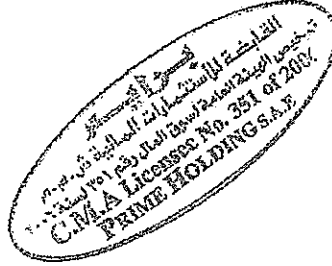 برايم
القابضة للاستثمارات المالية ش.م.م
ترخيص الهيئة العامة لسوق المال رقم ٣٥١ لسنة
C.M.A Licensee No. 351 of
PRIME HOLDING S.A.E